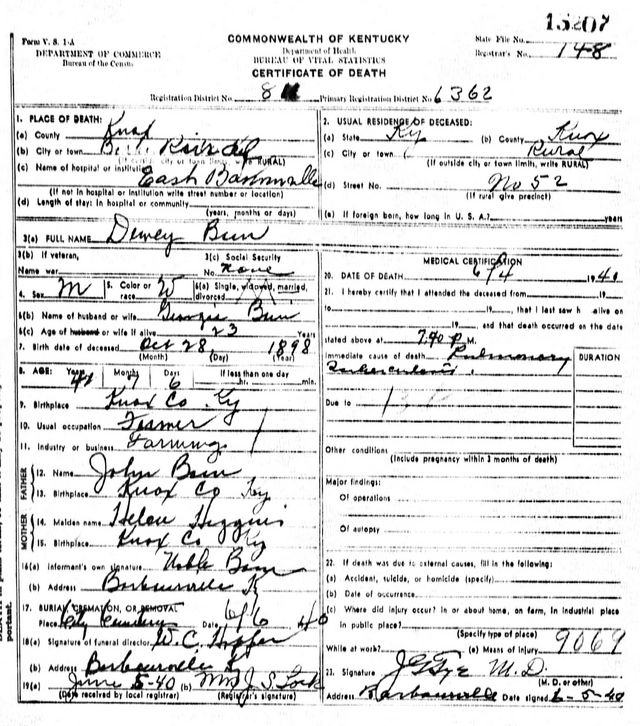 15207
Form V. S. 1-A
DEPARTMENT OF COMMERCE
Bureau of the Census
COMMONWEALTH OF KENTUCKY
Department of Health
BUREAU OF VITAL STATISTICS
CERTIFICATE OF DEATH
State File No.
Registrar's No. 148
Registration District No. 8 Primary Registration District No. 6362
1. PLACE OF DEATH:
(a) County Knox
(b) City or town
(If outside city or town limits, write RURAL)
(c) Name of hospital or institution East Barbourville
(If not in hospital or institution write street number or location)
(d) Length of stay: In hospital or community
(years, months or days)
2. USUAL RESIDENCE OF DECEASED:
(a) State Ky (b) County Knox
(c) City or town Rural
(If outside city or town limits, write RURAL)
(d) Street No. No 52
(If rural give precinct)
(e) If foreign born, how long in U. S. A.? years
3(a) FULL NAME Dewey
3(b) If veteran,
Name war
3(c) Social Security
No. None
4. Sex M 5. Color or race W 6(a) Single, widowed, married, divorced M
6(b) Name of husband or wife
6(c) Age of husband or wife if alive 23 Years
7. Birth date of deceased Oct 28, 1898
(Month) (Day) (Year)
8. AGE: Years 41 Months 7 Days 6 If less than one day
hr. min.
9. Birthplace Knox Co Ky
10. Usual occupation Farmer
11. Industry or business Farming
FATHER
12. Name John
13. Birthplace Knox Co Ky
MOTHER
14. Maiden name Helen Higgins
15. Birthplace Knox Co Ky
16(a) Informant's own signature Noble
(b) Address Barbourville K
17. BURIAL, CREMATION, OR REMOVAL
Place City Cemetery Date 6/6 40
18(a) Signature of funeral director W. C. Hopper
(b) Address Barbourville K
19(a) June 5-40 (b) Mrs J. S. Lock
(Date received by local registrar) (Registrar's signature)
MEDICAL CERTIFICATION
20. DATE OF DEATH 6/4 1940
21. I hereby certify that I attended the deceased from 19
to 19 , that I last saw h alive on
19 , and that death occurred on the date
stated above at 7:40 P. M.
Immediate cause of death Pulmonary
Tuberculosis
DURATION
Due to
Other conditions
(Include pregnancy within 3 months of death)
Major findings:
Of operations
Of autopsy
22. If death was due to external causes, fill in the following:
(a) Accident, suicide, or homicide (specify)
(b) Date of occurrence
(c) Where did injury occur? In or about home, on farm, in industrial place
in public place?
(Specify type of place)
While at work? (e) Means of injury 9069
23. Signature M. D.
(M. D. or other)
Address Barbourville Date signed 6-5-40
portant.